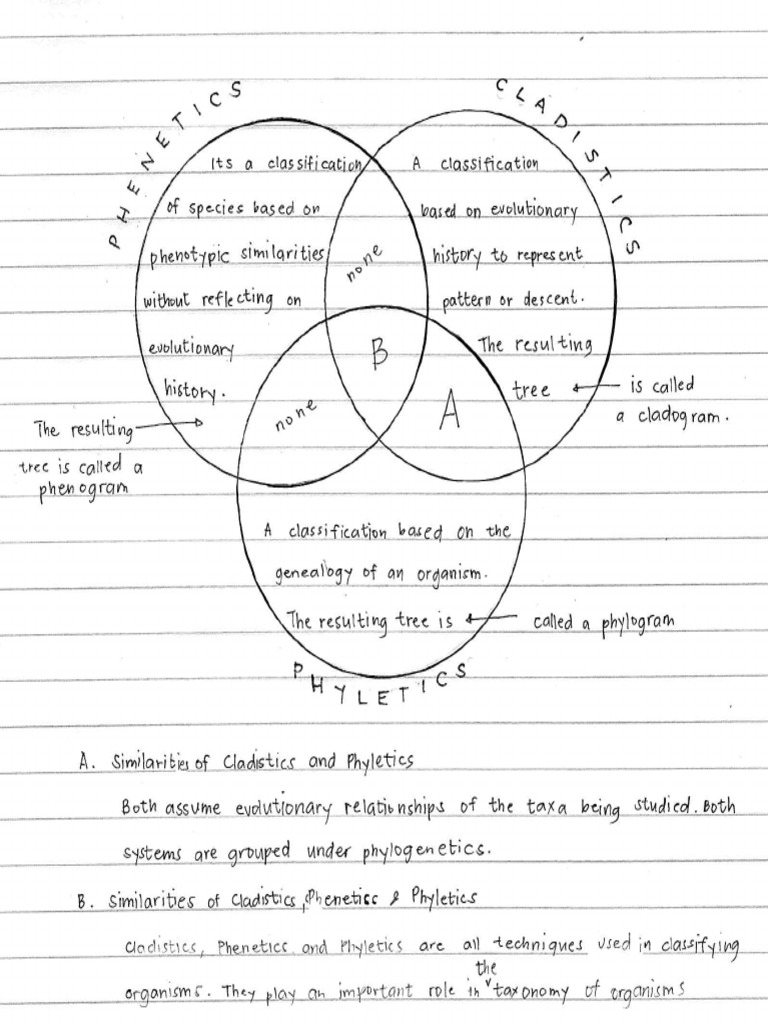 PHENETICS
CLADISTICS
Its a classification
of species based on
phenotypic similarities
without reflecting on
evolutionary
history.
The resulting
tree is called a
phenogram
none
A classification
based on evolutionary
history to represent
pattern or descent.
The resulting
tree
is called
a cladogram.
B
none
A
A classification based on the
genealogy of an organism.
The resulting tree is
called a phylogram
PHYLETICS
A. Similarities of Cladistics and Phyletics
Both assume evolutionary relationships of the taxa being studied. Both
systems are grouped under phylogenetics.
B. Similarities of Cladistics, Phenetics & Phyletics
Cladistics, Phenetics and Phyletics are all techniques used in classifying
the
organisms. They play an important role in taxonomy of organisms